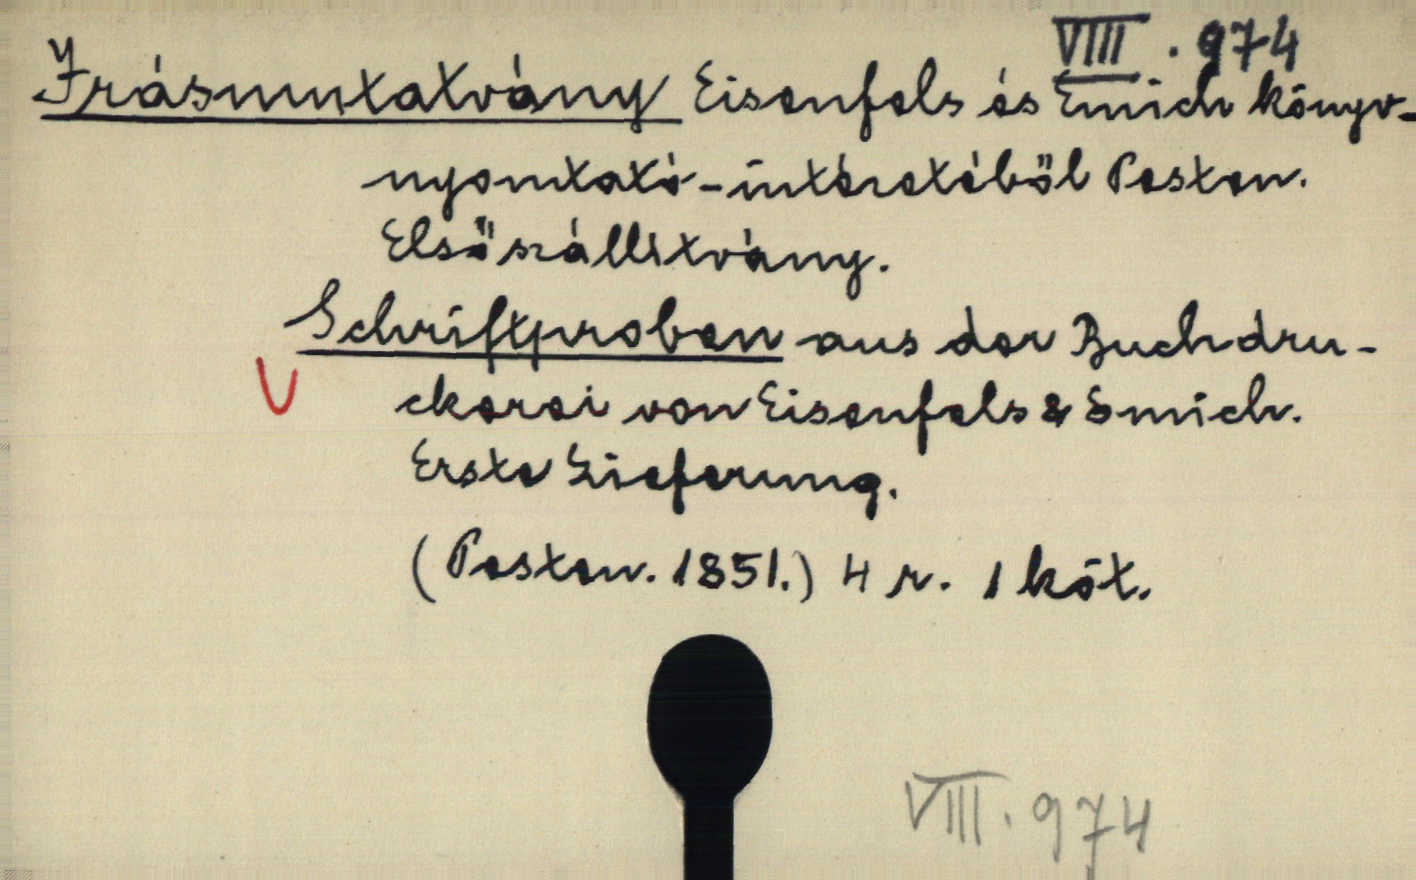 VIII. 974
Irásmutatvány Eisenfels és Emich könyv-
nyomtató-intézetéből Pesten.
Első szállitvány.
Schriftproben aus der Buchdru-
ckerei von Eisenfels & Emich.
Erste Lieferung.
(Pesten. 1851.) 4 r. 1 köt.
VIII. 974